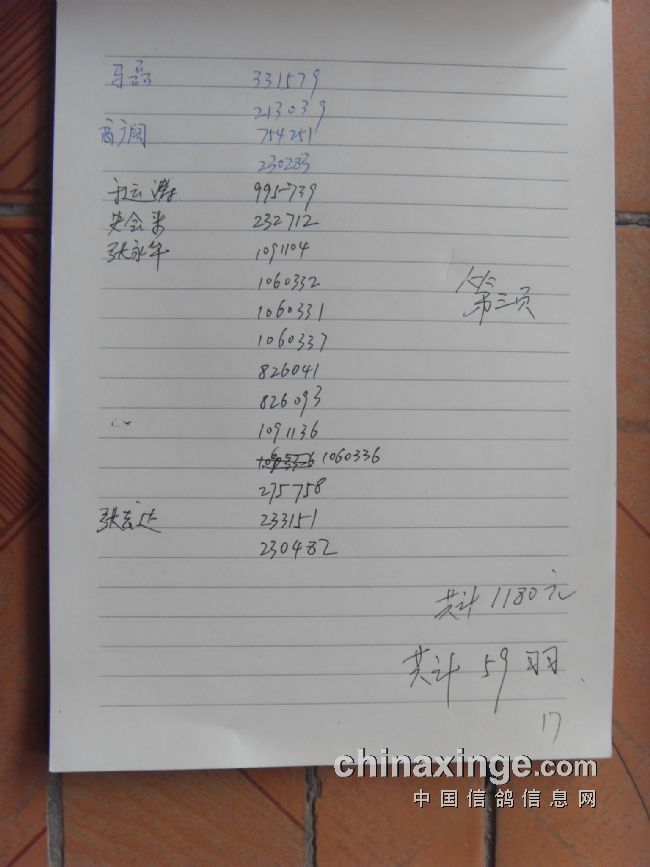 马磊 331579
213039
商广阔 754251
230283
杜云涛 995739
史会来 232712
张永军 1091104
1060332
第三页
1060331
1060337
826041
826093
1091136
1060336
275758
张宏达 233151
230482
共计 1180元
共计 59羽
17
chinaxinge.com
中国信鸽信息网